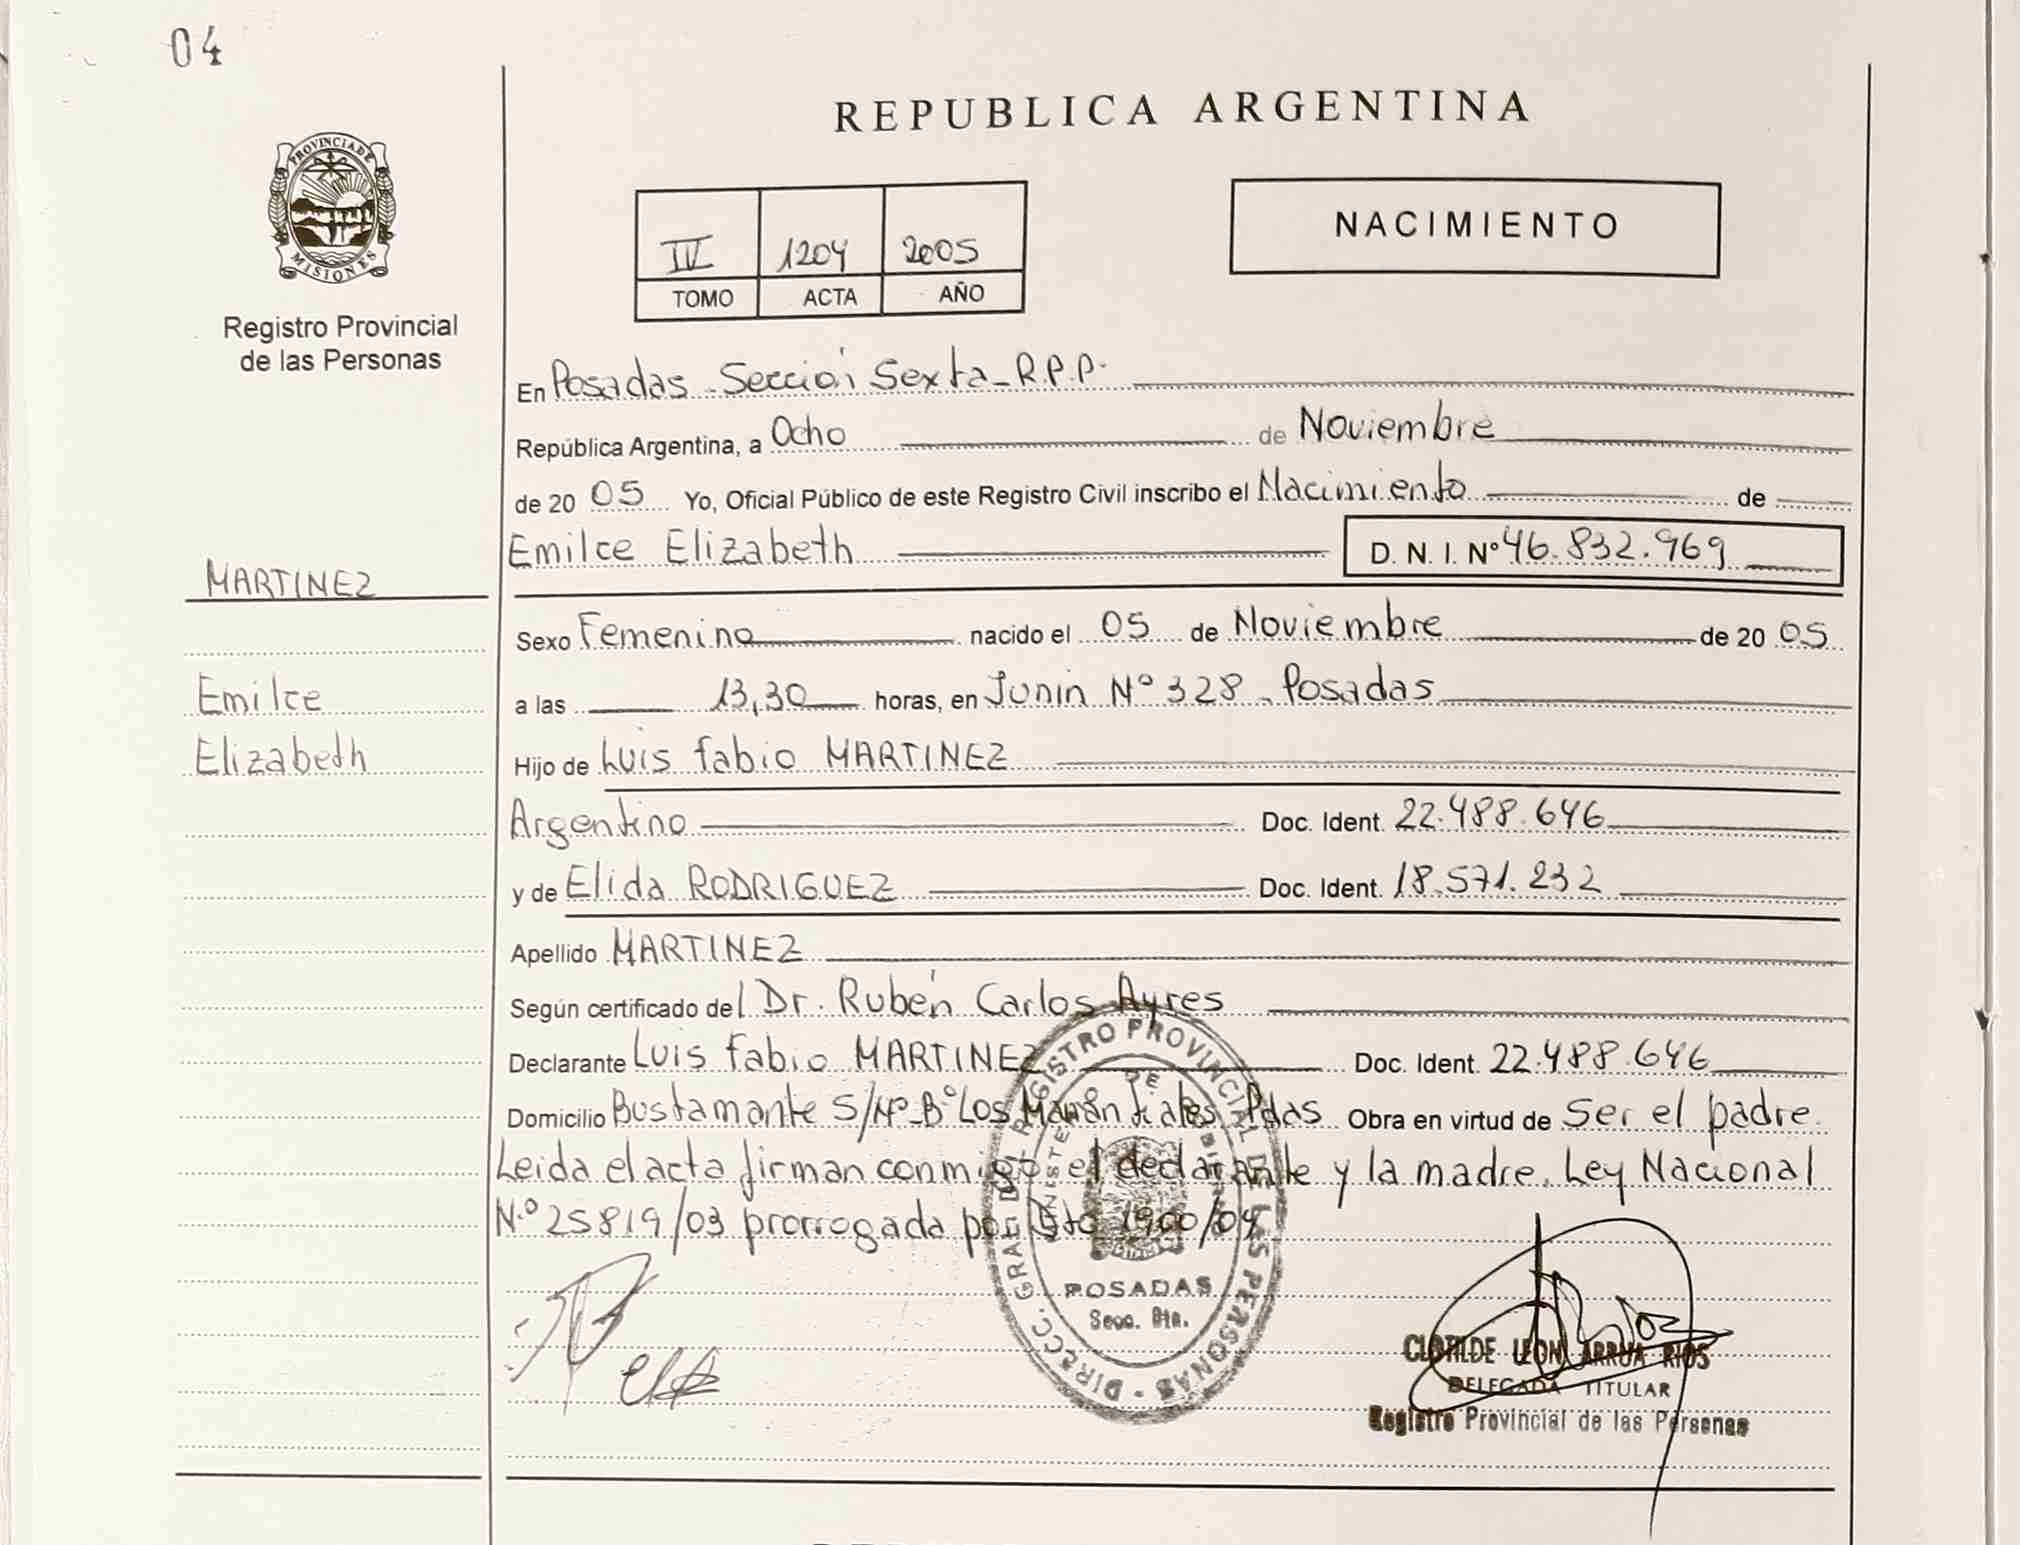 04
REPUBLICA ARGENTINA
PROVINCIA DE MISIONES
Registro Provincial
de las Personas
IV 1204 2005
TOMO ACTA AÑO
NACIMIENTO
En Posadas - Sección Sexta - R.P.P.
República Argentina, a Ocho de Noviembre
de 20 05 Yo, Oficial Público de este Registro Civil inscribo el Nacimiento de
Emilce Elizabeth D. N. I. Nº 46.832.969
MARTINEZ
Sexo Femenino nacido el 05 de Noviembre de 20 05
Emilce
a las 13,30 horas, en Junin Nº 328 - Posadas
Elizabeth
Hijo de Luis fabio MARTINEZ
Argentino Doc. Ident. 22.488.646
y de Elida RODRIGUEZ Doc. Ident. 18.571.232
Apellido MARTINEZ
Según certificado del Dr. Rubén Carlos Ayres
Declarante Luis fabio MARTINEZ Doc. Ident. 22.488.646
Domicilio Bustamante S/Nº - Bº Los Manantiales, Pdas Obra en virtud de Ser el padre.
Leida el acta firman conmigo el declarante y la madre. Ley Nacional
N.º 25819/03 prorrogada por Dto 1900/04
DIRECC. GRAL DEL REGISTRO PROVINCIAL DE LAS PERSONAS
POSADAS
Secc. 6ta.
CLOTILDE LEON ARRUA RIOS
DELEGADA TITULAR
Registro Provincial de las Personas